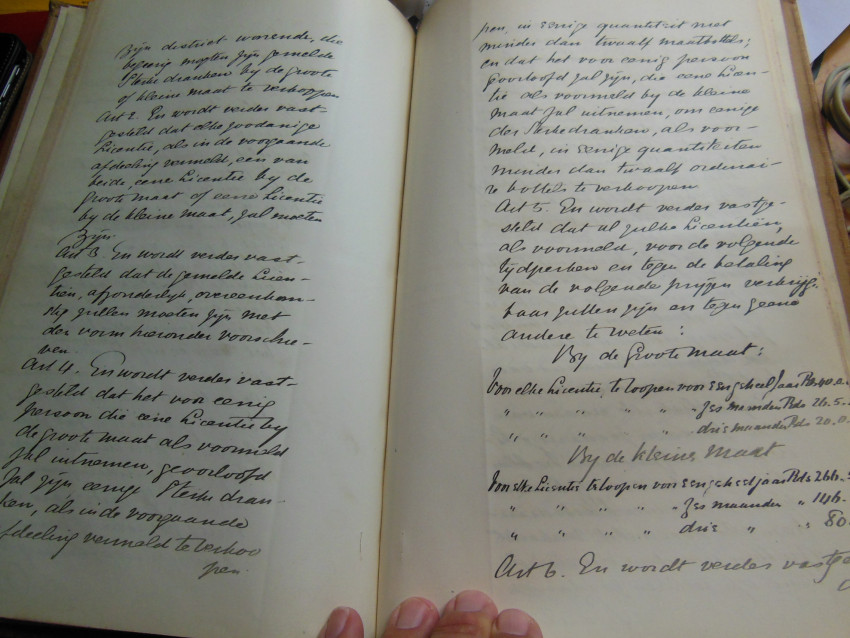 zijn district worende, die
bezig moeten zijn gemelde
Sterke dranken by de groote
of kleine maat te verkoopen
Art 2. En wordt verder vast-
gesteld dat elke zoodanige
Licentie, als in de voorgaande
afdeeling vermeld, een van
beide, eene Licentie by de
groote maat of eene Licentie
by de kleine maat, zal moeten
zijn.
Art 3. En wordt verder vast-
gesteld dat de gemelde Licen-
tien, afzonderlyk, overeenkom-
stig zullen moeten zijn met
den vorm hieronder voorschre-
ven.
Art 4. En wordt verder vast-
gesteld dat het voor eenig
persoon die eene Licentie by
de groote maat als voormeld
zal uitnemen, geoorloofd
zal zijn eenige Sterke dran-
ken, als in de voorgaande
afdeeling vermeld te verkoo
pen.
pen, in eenige quantiteit niet
minder dan twaalf maatbottels;
en dat het voor eenig persoon
geoorloofd zal zijn, die eene Licen-
tie als voormeld by de kleine
maat zal uitnemen, om eenige
der Sterke dranken, als voor-
meld, in eenige quantiteiten
minder dan twaalf ordinai-
re bottels te verkoopen
Art 5. En wordt verder vastge-
steld dat al zulke Licentiën,
als voormeld, voor de volgende
tijdperken en tegen de betaling
van de volgende prijzen verkrijg-
baar zullen zijn en tegen geene
andere te weten:
By de Groote maat:
Voor elke Licentie, te loopen voor een geheel Jaar Rds 40.0.
" " " " " " Zes maanden Rds 26.5.
" " " " " " drie maanden Rds 20.0.
By de kleine Maat
Voor elke Licentie te loopen voor een geheel jaar Rds 266.
" " " " " Zes maanden " 146.
" " " " " drie " " 80.
Art 6. En wordt verder vastge